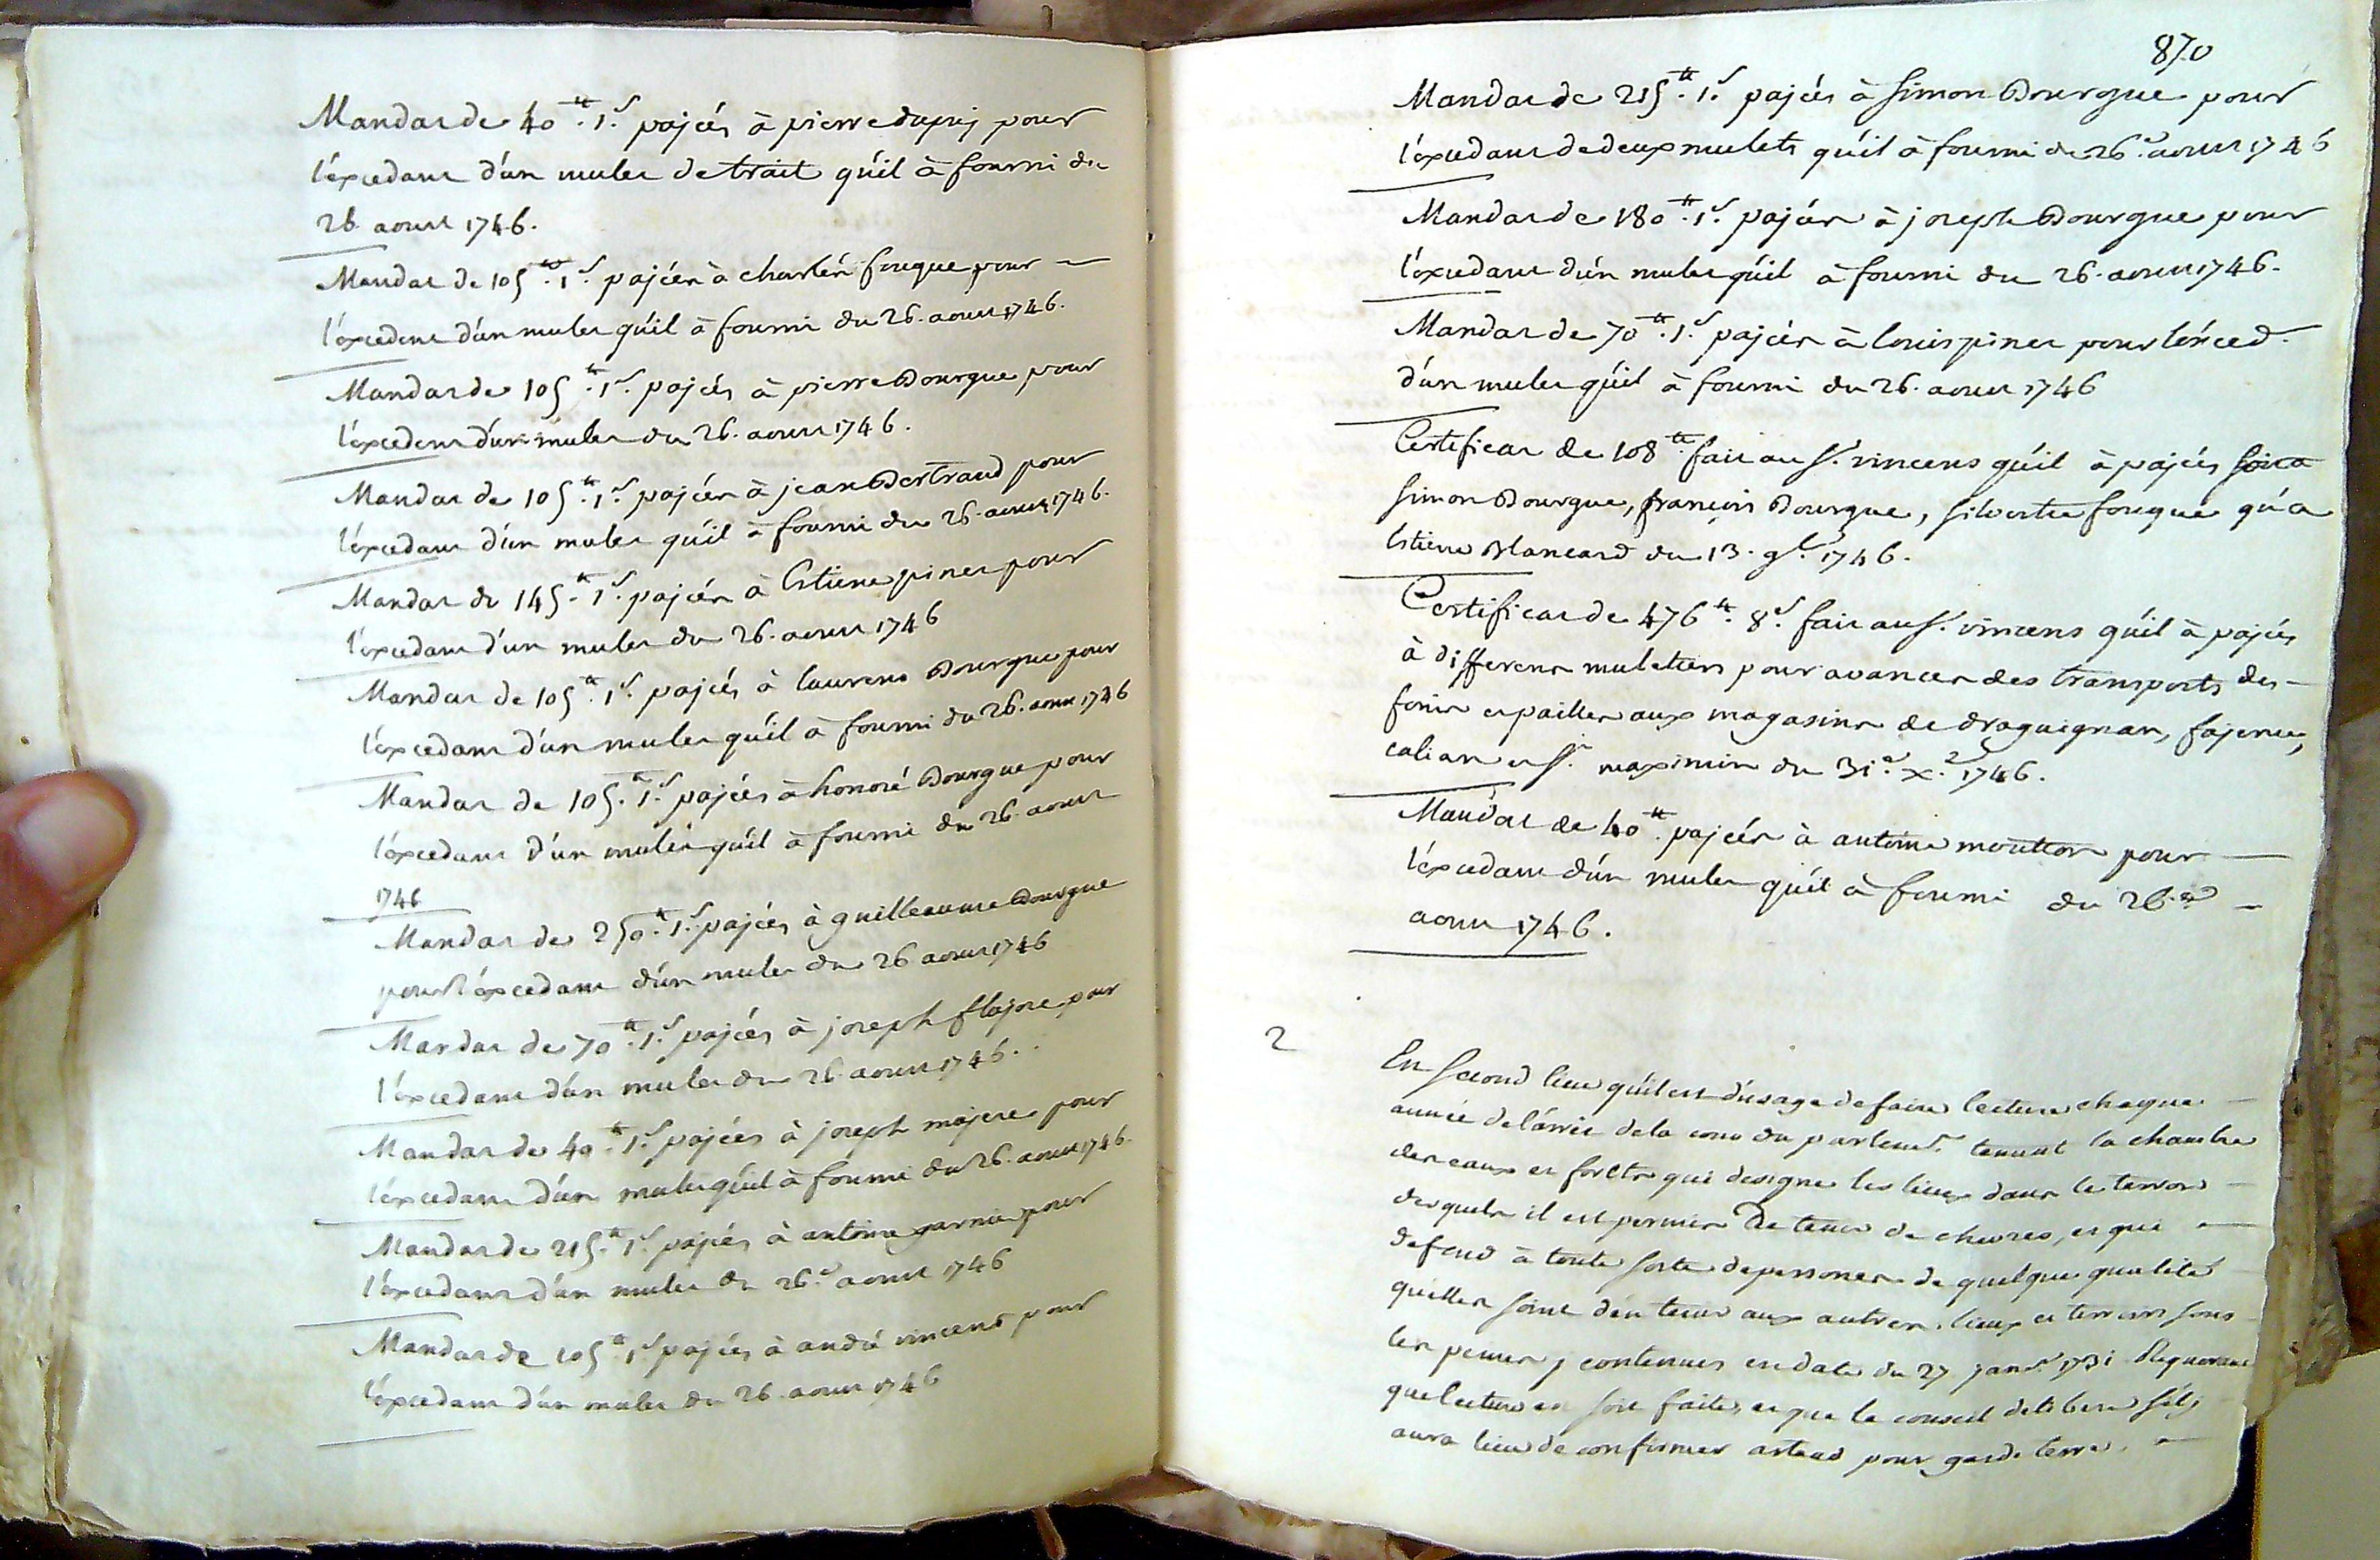 Mandat de 40tt. 1s. pajées à pierre dupuj pour
l'éxcedant d'ún mulet de trait qúil à fourni du
26 aoust 1746.
Mandat de 105tt. 1s. pajées à charles fouque pour
l'éxcedent d'ún mulet qúil à fourni du 26. aoust 1746.
Mandat de 105tt. 1s. pajées à pierre Bourgue pour
l'éxcedent d'ún mulet du 26. aoust 1746.
Mandat de 105tt. 1s. pajées à jean Bertrand pour
l'éxcedant d'ún mulet qúil à fourni du 26. aoust 1746.
Mandat de 145tt. 1s. pajées à Estiene pinet pour
l'éxcedant d'ún mulet du 26. aoust 1746
Mandat de 105tt. 1s. pajées à laurens Bourgue pour
l'éxcedant d'ún mulet qúil à fourni du 26. aoust 1746
Mandat de 105tt. 1s. pajées à honoré Bourgue pour
l'éxcedant d'ún mulet qúil à fourni du 26. aoust
1746
Mandat de 250tt. 1s. pajées à guilleaume Bourgue
pour l'éxcedant d'ún mulet du 26 aoust 1746
Mandat de 70tt. 1s. pajées à joseph flajore pour
l'éxcedant d'ún mulet du 26. aoust 1746.
Mandat de 40tt. 1s. pajées à joseph majere pour
l'éxcedant d'ún mulet qúil à fourni du 26. aoust 1746.
Mandat de 215tt. 1s. pajées à antoine garnie pour
l'éxcedant d'ún mulet du 26e aoust 1746
Mandat de 105tt. 1s. pajées à andré vincent pour
l'éxcedant d'ún mulet du 26. aoust 1746
870
Mandat de 215tt. 1s. pajées à simon Bourgue pour
l'éxcedant de deux mulets qúil à fourni du 26e aoust 1746
Mandat de 180tt. 1s. pajées à joseph Bourgue pour
l'éxcedant d'ún mulet qúil à fourni du 26. aoust 1746.
Mandat de 70tt. 1s. pajées à louis pinet pour l'éxced.
d'ún mulet qúil à fourni du 26. aoust 1746
Certificat de 108tt fait au sr. vincens qúil à pajées soit a
simon Bourgue, françois Bourgue, silvestre fouque qú'a
Estiene Blancard du 13. 9bre. 1746.
Certificat de 476tt. 8s. fait au sr. vincens qúil à pajées
à differens muletiers pour avances des transports des
foins et pailles aux magasins de draguignan, fajence,
calian et st. maximin du 31e. xbre. 1746.
Mandat de 40tt. pajées à antoine moutton pour
l'éxcedant d'ún mulet qúil à fourni du 26e
aoust 1746.
2
En second lieu qúil est d'usage de faire lecture chaque
année de l'arrêt de la cour du parlemt. tenant la chambre
des eaux et forêts qui designe les lieux dans le terroir
desquels il est permis de tenir de chevres, et qui
defend à toute sorte de personnes de quelque qualité
quelles soint d'en tenir aux autres lieux et terroirs sous
les peines j contenues en date du 27 janvr. 1731 Requerant
que lecture en soit faite, et que le conseil delibere s'ilj
aura lieu de confirmer artaud pour garde terre.